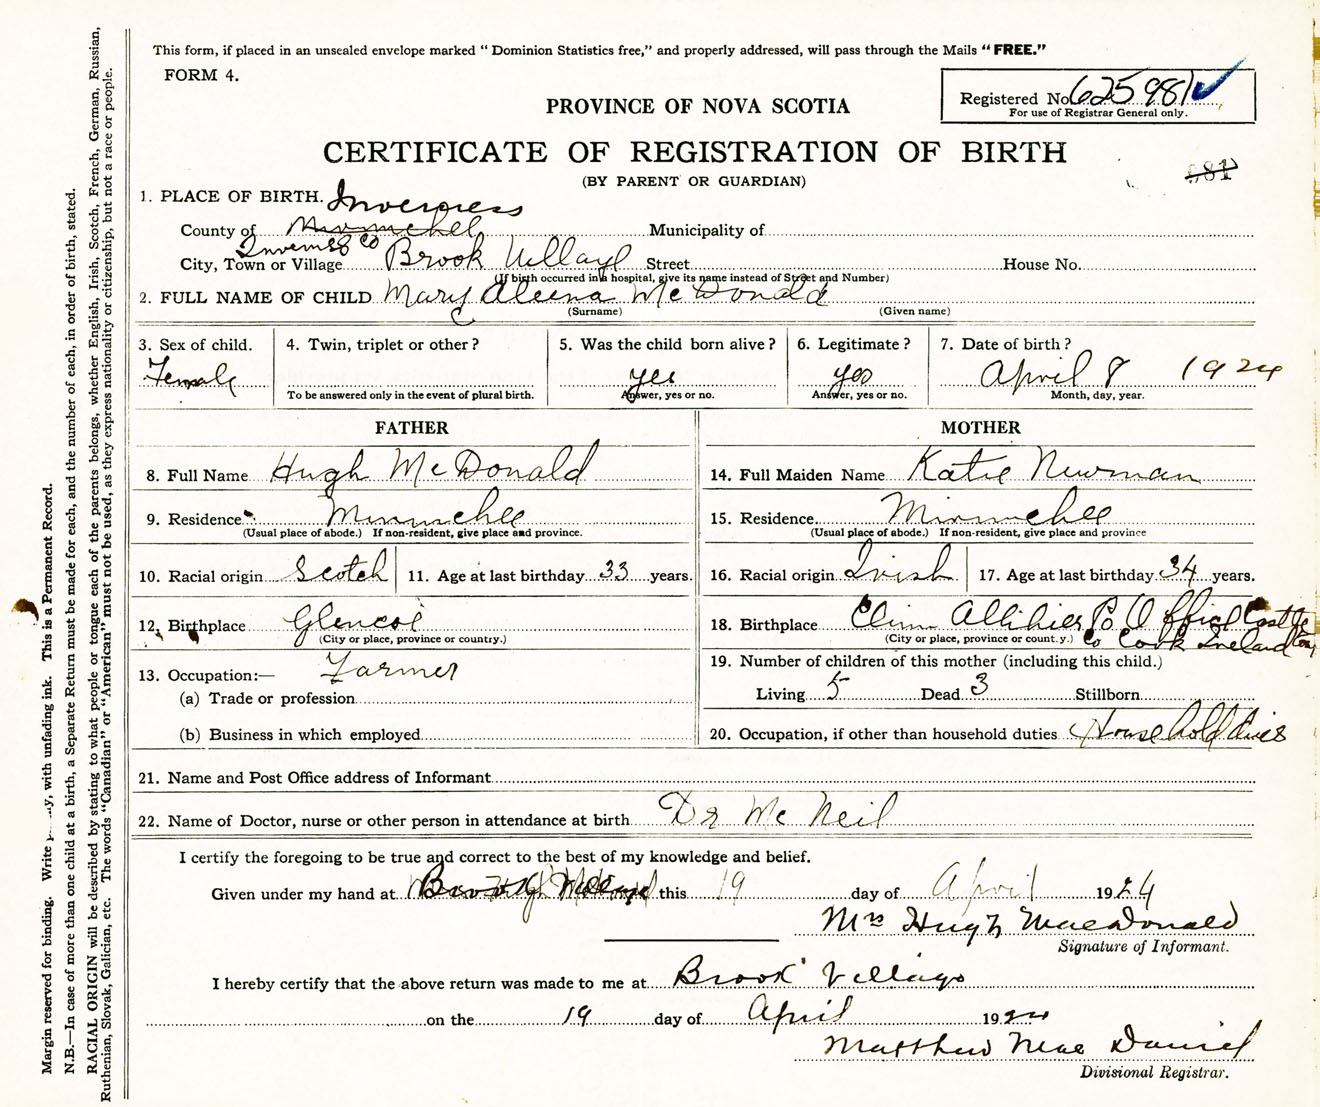 This form, if placed in an unsealed envelope marked “Dominion Statistics free,” and properly addressed, will pass through the Mails “FREE.”
FORM 4.
Registered No. 625981
For use of Registrar General only.
PROVINCE OF NOVA SCOTIA
CERTIFICATE OF REGISTRATION OF BIRTH
(BY PARENT OR GUARDIAN)
1. PLACE OF BIRTH. Inverness
County of Municipality of
Inverness Co
City, Town or Village Brook Village Street House No.
(If birth occurred in a hospital, give its name instead of Street and Number)
2. FULL NAME OF CHILD Mary Aleena McDonald
(Surname) (Given name)
3. Sex of child. 4. Twin, triplet or other? 5. Was the child born alive? 6. Legitimate? 7. Date of birth?
Female yes yes April 8 1924
To be answered only in the event of plural birth. Answer, yes or no. Answer, yes or no. Month, day, year.
FATHER
8. Full Name Hugh McDonald
9. Residence
(Usual place of abode.) If non-resident, give place and province.
10. Racial origin Scotch 11. Age at last birthday 33 years.
12. Birthplace Glencoe
(City or place, province or country.)
13. Occupation:— Farmer
(a) Trade or profession
(b) Business in which employed
MOTHER
14. Full Maiden Name Katie Newman
15. Residence
(Usual place of abode.) If non-resident, give place and province
16. Racial origin Irish 17. Age at last birthday 34 years.
18. Birthplace Allihies P O
(City or place, province or count.y.) Co Cork Ireland
19. Number of children of this mother (including this child.)
Living 5 Dead 3 Stillborn
20. Occupation, if other than household duties Household
21. Name and Post Office address of Informant
22. Name of Doctor, nurse or other person in attendance at birth Dr McNeil
I certify the foregoing to be true and correct to the best of my knowledge and belief.
Given under my hand at this 19 day of April 1924
Mrs Hugh MacDonald
Signature of Informant.
I hereby certify that the above return was made to me at Brook Village
on the 19 day of April 1924
Matthew Mac Daniel
Divisional Registrar.
Margin reserved for binding. Write with unfading ink. This is a Permanent Record.
N.B.—In case of more than one child at a birth, a Separate Return must be made for each, and the number of each, in order of birth, stated.
RACIAL ORIGIN will be described by stating to what people or tongue each of the parents belongs, whether English, Irish, Scotch, French, German, Russian,
Ruthenian, Slovak, Galician, etc. The words “Canadian” or “American” must not be used, as they express nationality or citizenship, but not a race or people.